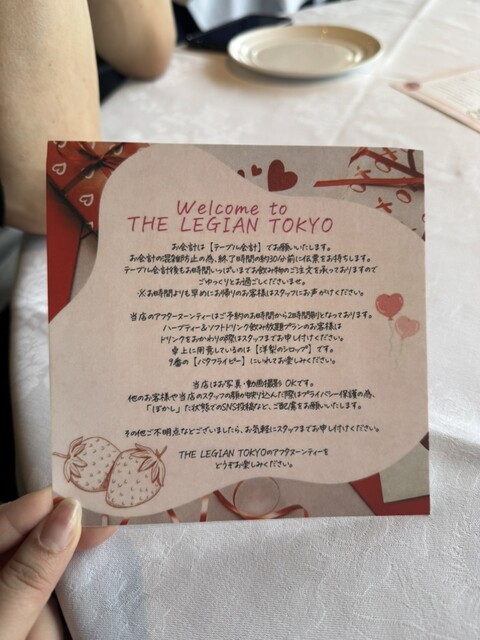 Welcome to
THE LEGIAN TOKYO
お会計は【テーブル会計】でお願いいたします。
お会計の混雑防止の為、終了時間の約30分前に伝票をお持ちします。
テーブル会計後もお時間いっぱいまでお飲み物のご注文を承っておりますので
ごゆっくりとお過ごしくださいませ。
※お時間よりも早めにお帰りのお客様はスタッフにお声がけください。
当店のアフタヌーンティーはご予約のお時間から2時間制となっております。
ハーブティー&ソフトドリンク飲み放題プランのお客様は
ドリンクをおかわりの際はスタッフまでお申し付けください。
卓上に用意しているのは【洋梨のシロップ】です。
9番の【バタフライピー】にいれてお楽しみください。
当店はお写真・動画撮影OKです。
他のお客様や当店のスタッフの顔が映り込んだ際はプライバシー保護の為、
「ぼかし」た状態でのSNS投稿など、ご配慮をお願いいたします。
その他ご不明点などございましたら、お気軽にスタッフまでお申し付けください。
THE LEGIAN TOKYOのアフタヌーンティーを
どうぞお楽しみください。